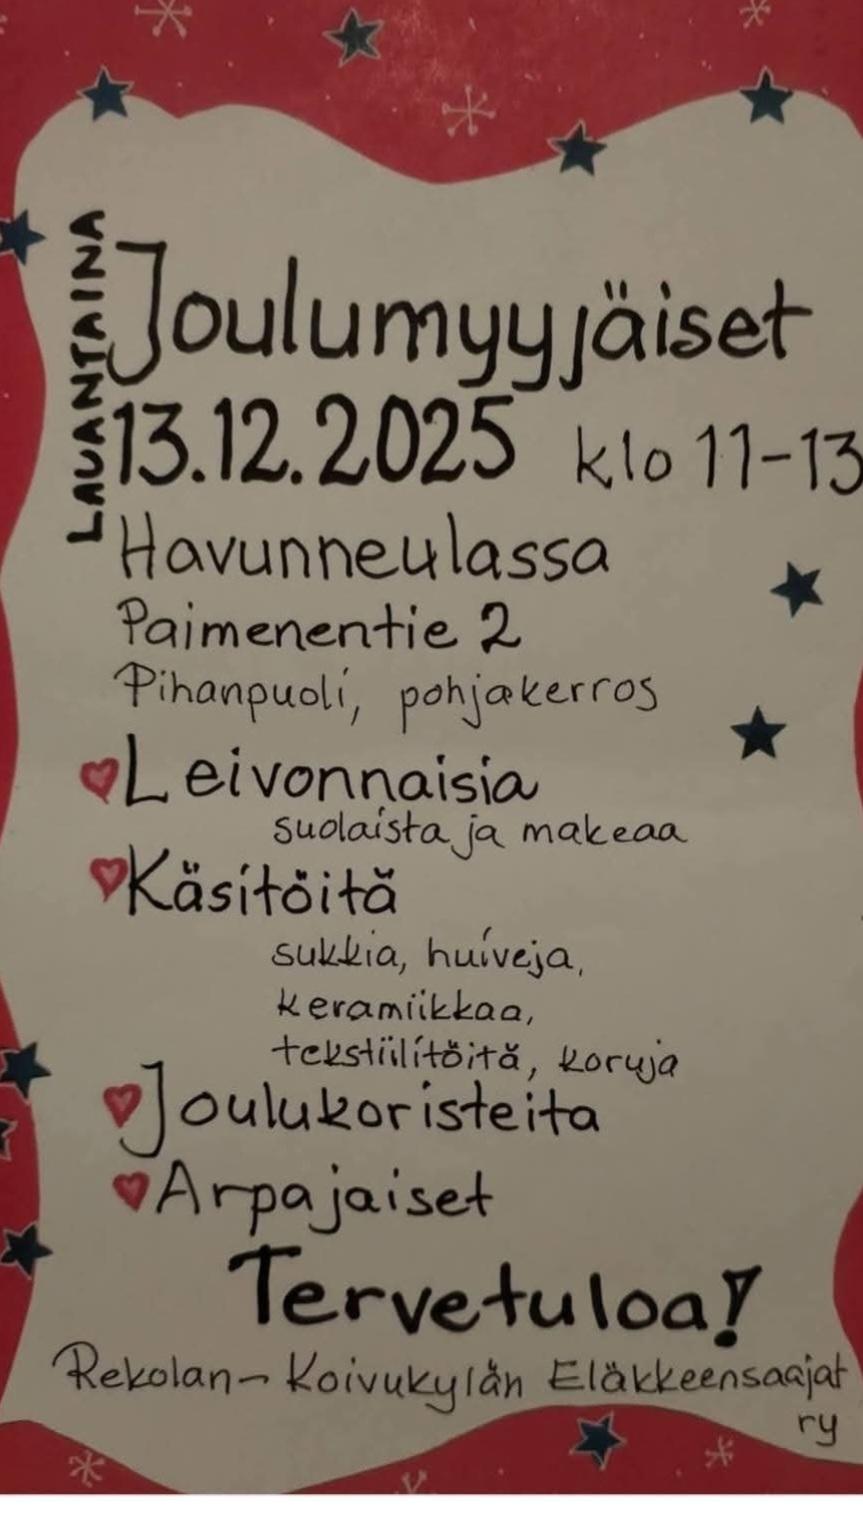 LAUANTAINA
Joulumyyjäiset
13.12.2025 klo 11-13
Havunneulassa
Paimenentie 2
Pihanpuoli, pohjakerros
Leivonnaisia
suolaista ja makeaa
Käsitöitä
sukkia, huiveja,
keramiikkaa,
tekstiilitöitä, koruja
Joulukoristeita
Arpajaiset
Tervetuloa!
Rekolan-Koivukylän Eläkkeensaajat
ry